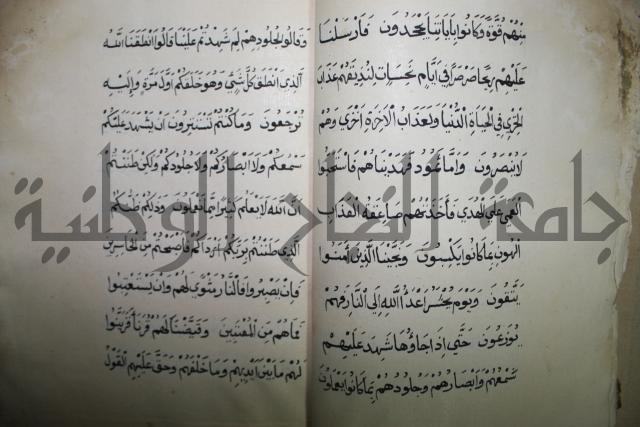 مِنْهُمْ قُوَّةً وَكَانُوا بِآيَاتِنَا يَجْحَدُونَ فَأَرْسَلْنَا
عَلَيْهِمْ رِيحًا صَرْصَرًا فِي أَيَّامٍ نَحِسَاتٍ لِنُذِيقَهُمْ عَذَابَ
الْخِزْيِ فِي الْحَيَاةِ الدُّنْيَا وَلَعَذَابُ الْآخِرَةِ أَخْزَى وَهُمْ
لَا يُنْصَرُونَ وَأَمَّا ثَمُودُ فَهَدَيْنَاهُمْ فَاسْتَحَبُّوا
الْعَمَى عَلَى الْهُدَى فَأَخَذَتْهُمْ صَاعِقَةُ الْعَذَابِ
الْهُونِ بِمَا كَانُوا يَكْسِبُونَ وَنَجَّيْنَا الَّذِينَ آمَنُوا
يَتَّقُونَ وَيَوْمَ يُحْشَرُ أَعْدَاءُ اللَّهِ إِلَى النَّارِ فَهُمْ
يُوزَعُونَ حَتَّى إِذَا جَاؤُهَا شَهِدَ عَلَيْهِمْ
سَمْعُهُمْ وَأَبْصَارُهُمْ وَجُلُودُهُمْ بِمَا كَانُوا يَعْمَلُونَ
وَقَالُوا لِجُلُودِهِمْ لِمَ شَهِدْتُمْ عَلَيْنَا قَالُوا أَنْطَقَنَا اللَّهُ
الَّذِي أَنْطَقَ كُلَّ شَيْءٍ وَهُوَ خَلَقَكُمْ أَوَّلَ مَرَّةٍ وَإِلَيْهِ
تُرْجَعُونَ وَمَا كُنْتُمْ تَسْتَتِرُونَ أَنْ يَشْهَدَ عَلَيْكُمْ
سَمْعُكُمْ وَلَا أَبْصَارُكُمْ وَلَا جُلُودُكُمْ وَلَكِنْ ظَنَنْتُمْ
أَنَّ اللَّهَ لَا يَعْلَمُ كَثِيرًا مِمَّا تَعْمَلُونَ وَذَلِكُمْ ظَنُّكُمُ
الَّذِي ظَنَنْتُمْ بِرَبِّكُمْ أَرْدَاكُمْ فَأَصْبَحْتُمْ مِنَ الْخَاسِرِينَ
فَإِنْ يَصْبِرُوا فَالنَّارُ مَثْوًى لَهُمْ وَإِنْ يَسْتَعْتِبُوا
فَمَا هُمْ مِنَ الْمُعْتَبِينَ وَقَيَّضْنَا لَهُمْ قُرَنَاءَ فَزَيَّنُوا
لَهُمْ مَا بَيْنَ أَيْدِيهِمْ وَمَا خَلْفَهُمْ وَحَقَّ عَلَيْهِمُ الْقَوْلُ
جامعة النجاح الوطنية